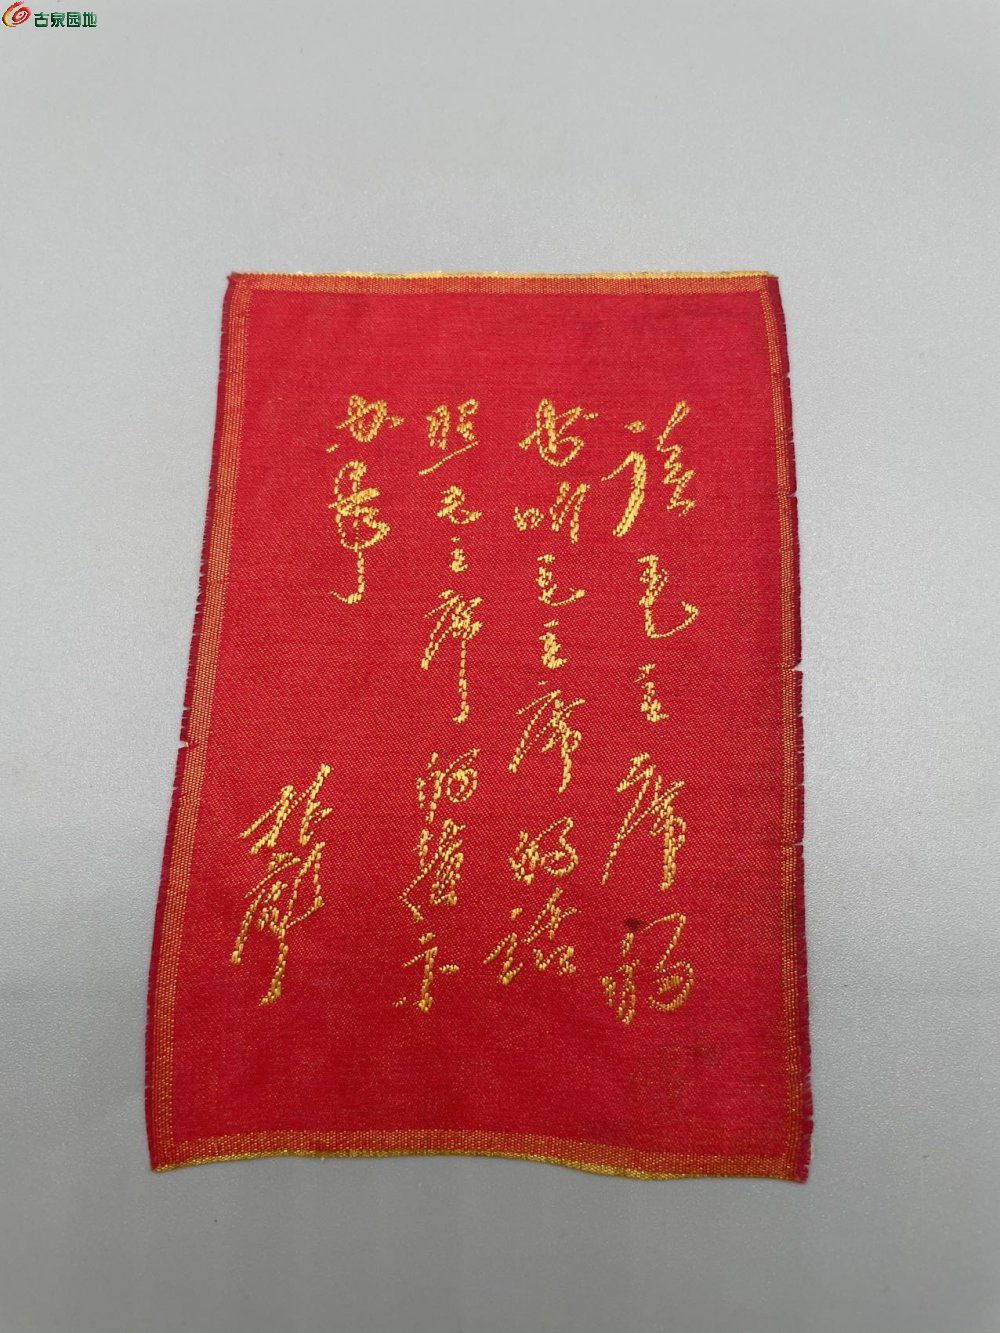 古泉园地
读毛主席的
书听毛主席的话
照毛主席的指示
办事
林彪